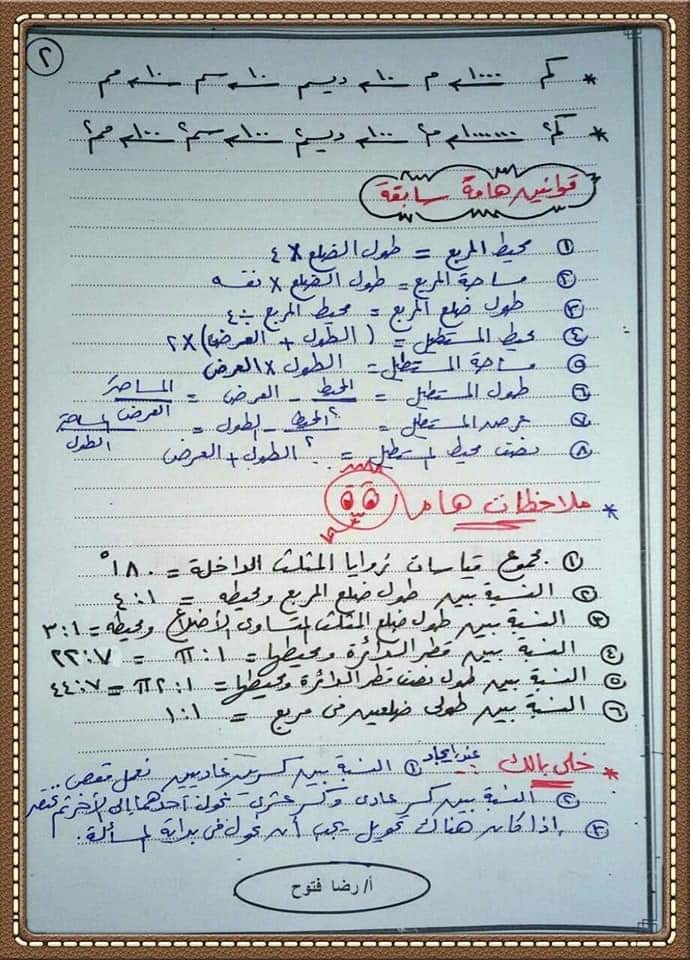 ٢
* كم ١٠٠٠ م ١٠ ديسم ١٠ سم ١٠ مم
* كم٢ ١٠٠٠٠٠٠ م٢ ١٠٠ ديسم٢ ١٠٠ سم٢ ١٠٠ مم٢
قوانين هامة سابقة
١ محيط المربع = طول الضلع × ٤
٢ مساحة المربع = طول الضلع × نفسه
٣ طول ضلع المربع = محيط المربع ÷ ٤
٤ محيط المستطيل = (الطول + العرض) × ٢
٥ مساحة المستطيل = الطول × العرض
٦ طول المستطيل = المحيط/٢ - العرض = المساحة/العرض
٧ عرض المستطيل = المحيط/٢ - الطول = المساحة/الطول
٨ نصف محيط المستطيل = الطول + العرض
* ملاحظات هامة
١ مجموع قياسات زوايا المثلث الداخلة = ١٨٠°
٢ النسبة بين طول ضلع المربع ومحيطه = ١ : ٤
٣ النسبة بين طول ضلع المثلث المتساوى الأضلاع ومحيطه = ١ : ٣
٤ النسبة بين قطر الدائرة ومحيطها = ١ : π = ٧ : ٢٢
٥ النسبة بين طول نصف قطر الدائرة ومحيطها = ١ : ٢π = ٧ : ٤٤
٦ النسبة بين طولى ضلعين فى مربع = ١ : ١
* خلى بالك عند إيجاد ١ النسبة بين كسرين عاديين نعمل مقص ..
٢ النسبة بين كسر عادى وكسر عشرى نحول أحدهما إلى الآخر ثم نختصر
٣ إذا كان هناك تحويل يجب أن نحول فى بداية المسألة.
أ/ رضا فتوح